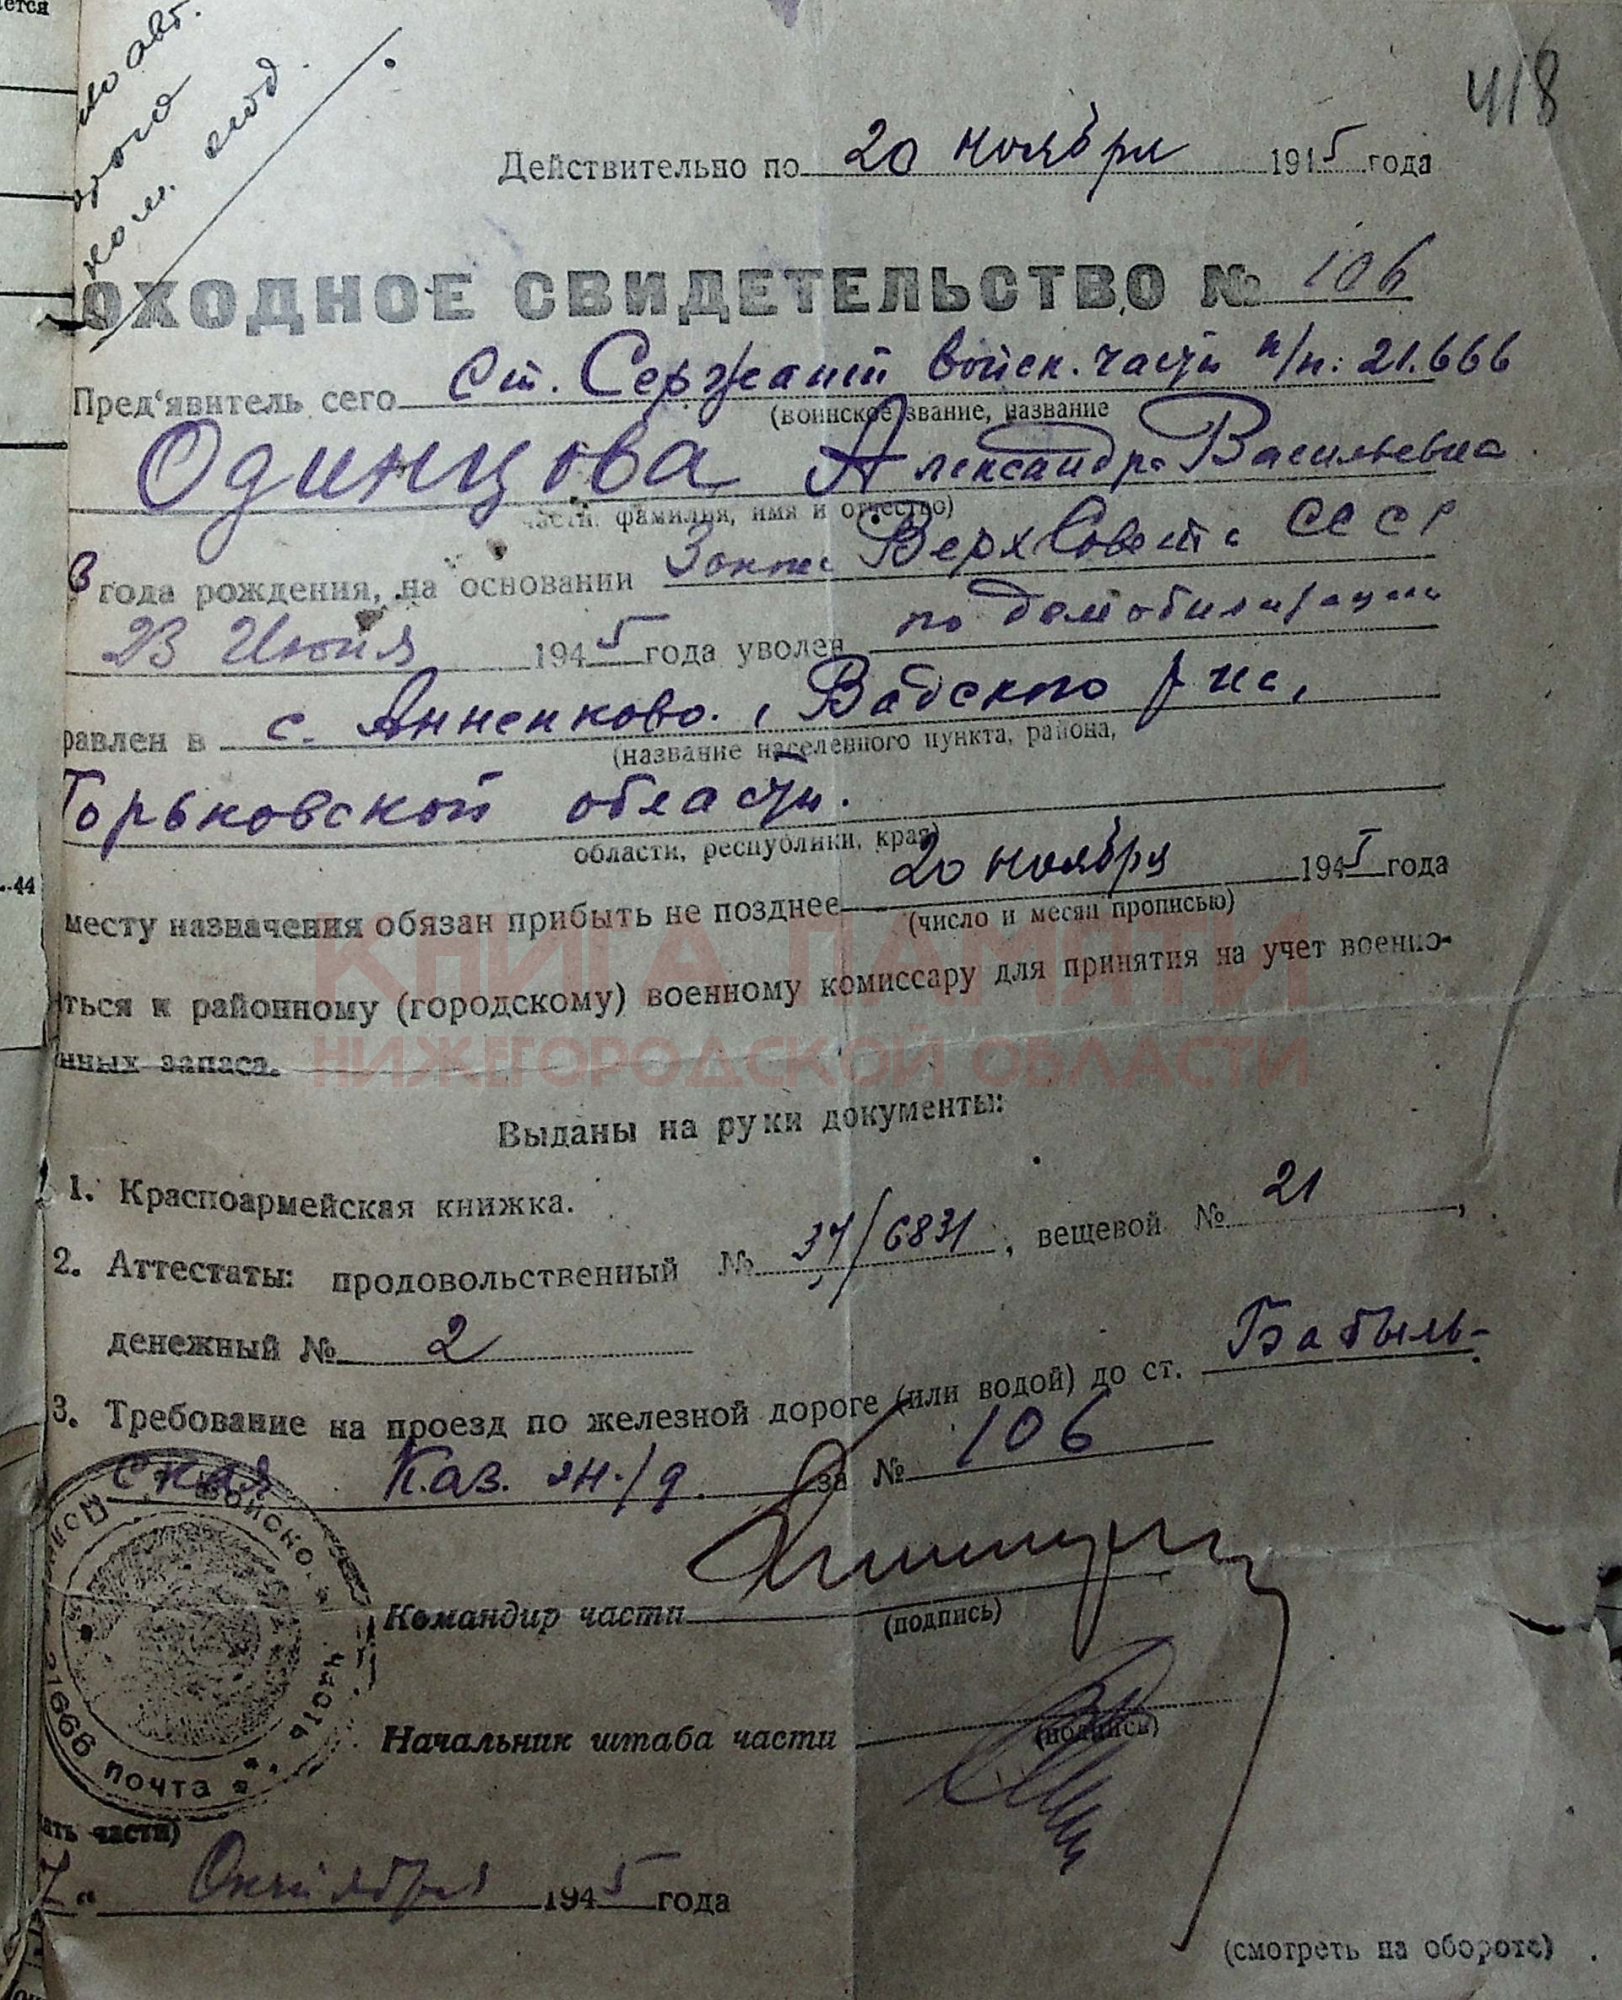 418
Действительно по 20 ноября 1945 года
ОХОДНОЕ СВИДЕТЕЛЬСТВО № 106
Пред‘явитель сего Ст. Сержант войск. части п/п: 21.666
(воинское звание, название
Одинцова Александра Васильевна
части, фамилия, имя и отчество)
3 года рождения, на основании Закона Верх Совета СССР
23 Июня 1945 года уволен по демобилизации
равлен в с. Анненково, Вадского р-на,
(название населенного пункта, района,
Горьковской области.
области, республики, края)
месту назначения обязан прибыть не позднее 20 ноября 1945 года
(число и месяц прописью)
ться к районному (городскому) военному комиссару для принятия на учет военно-
нных запаса.
КНИГА ПАМЯТИ
НИЖЕГОРОДСКОЙ ОБЛАСТИ
Выданы на руки документы:
1. Красноармейская книжка.
2. Аттестаты: продовольственный № 37/6831, вещевой № 21,
денежный № 2
3. Требование на проезд по железной дороге (или водой) до ст. Бабыль-
ская Каз. ж/д. за № 106
ВОЙСКОВАЯ ЧАСТЬ
21666 ПОЧТА
Командир части
(подпись)
Начальник штаба части
(подпись)
ать части)
7 " Октября 1945 года
(смотреть на обороте)
-44